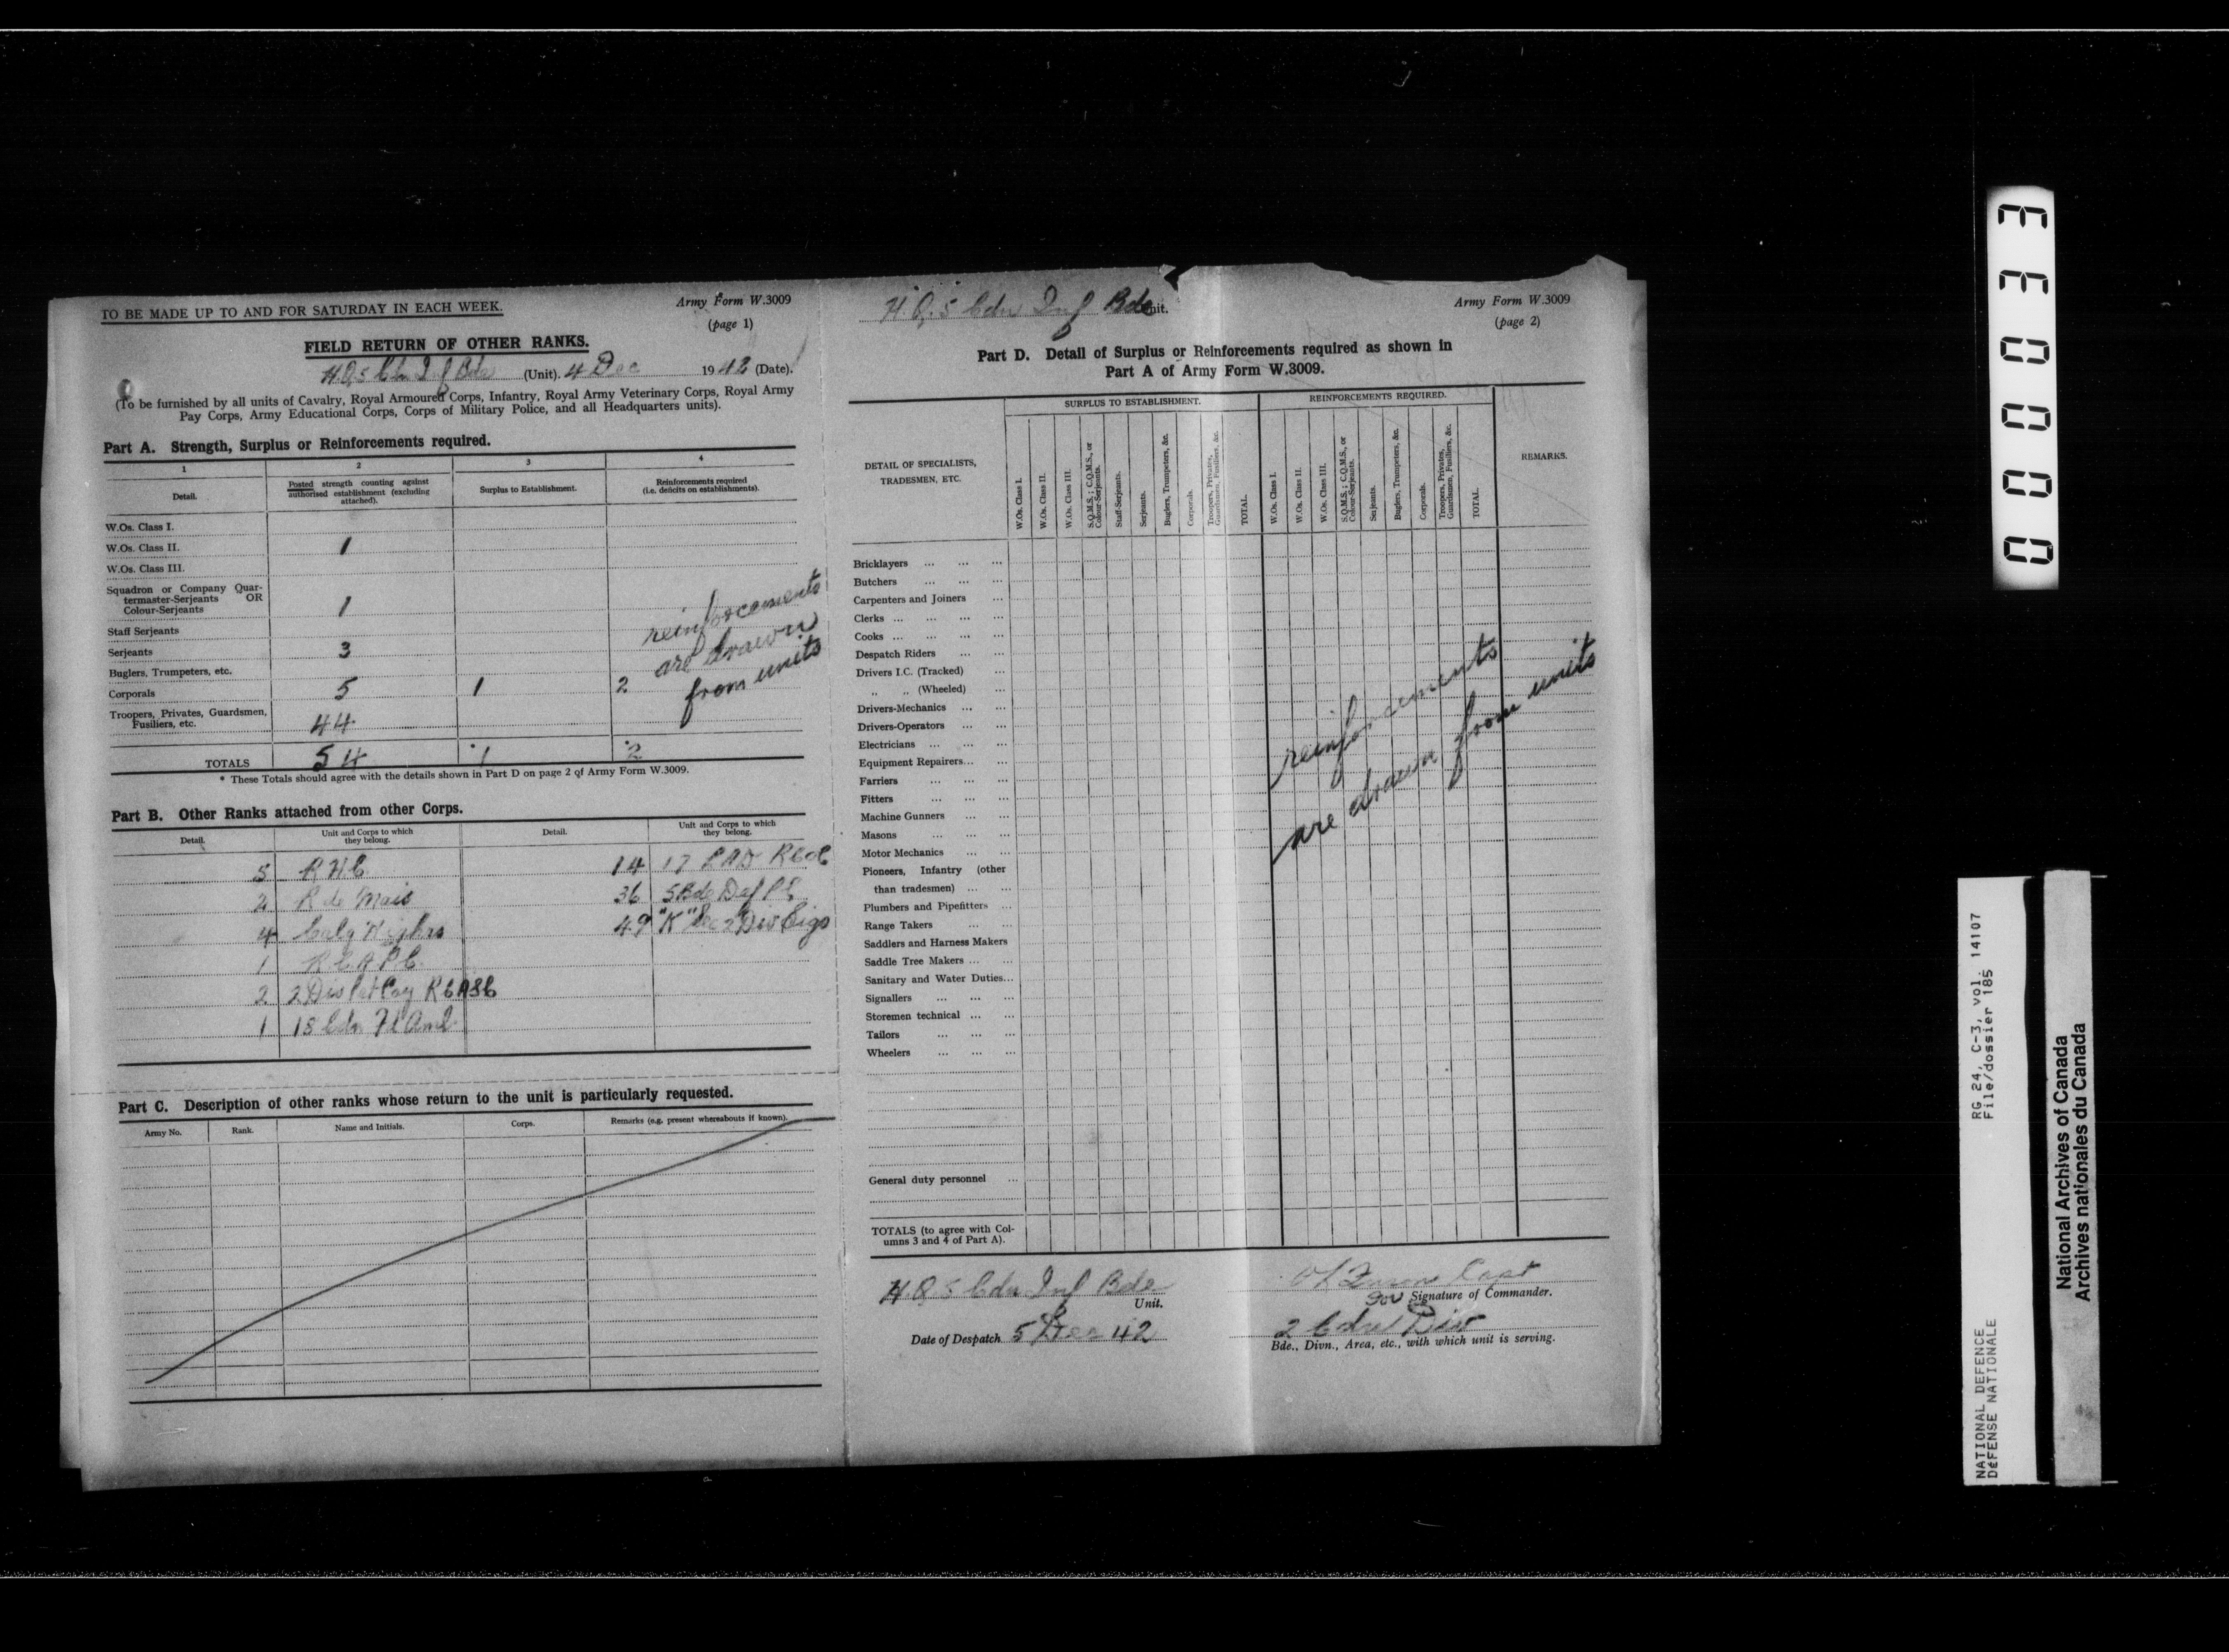 TO BE MADE UP TO AND FOR SATURDAY IN EACH WEEK.
Army Form W.3009
(page 1)
FIELD RETURN OF OTHER RANKS.
H.Q. 5 Cdn Inf Bde (Unit). 4 Dec 1942 (Date).
(To be furnished by all units of Cavalry, Royal Armoured Corps, Infantry, Royal Army Veterinary Corps, Royal Army
Pay Corps, Army Educational Corps, Corps of Military Police, and all Headquarters units).
Part A. Strength, Surplus or Reinforcements required.
1 2 3 4
Detail.
Posted strength counting against
authorised establishment (excluding
attached).
Surplus to Establishment.
Reinforcements required
(i.e. deficits on establishments).
W.Os. Class I.
W.Os. Class II. 1
W.Os. Class III.
Squadron or Company Quar-
termaster-Serjeants OR
Colour-Serjeants 1
Staff Serjeants
Serjeants 3
Buglers, Trumpeters, etc.
Corporals 5 1 2
Troopers, Privates, Guardsmen,
Fusiliers, etc. 44
reinforcements
are drawn
from units
TOTALS 54 *1 *2
* These Totals should agree with the details shown in Part D on page 2 of Army Form W.3009.
Part B. Other Ranks attached from other Corps.
Detail.
Unit and Corps to which
they belong.
Detail.
Unit and Corps to which
they belong.
5 R H C 14 17 LAD RCOC
2 R de Mais 36 5 Bde Def Pl
4 Calg Highrs 49 "K" Sec 2 Div Sigs
1 R C A P C
2 2 Div Coy RCASC
1 18 Cdn Fd Amb
Part C. Description of other ranks whose return to the unit is particularly requested.
Army No. Rank. Name and Initials. Corps. Remarks (e.g. present whereabouts if known).
H.Q. 5 Cdn Inf Bde Unit.
Army Form W.3009
(page 2)
Part D. Detail of Surplus or Reinforcements required as shown in
Part A of Army Form W.3009.
DETAIL OF SPECIALISTS,
TRADESMEN, ETC.
SURPLUS TO ESTABLISHMENT.
W.Os. Class I.
W.Os. Class II.
W.Os. Class III.
S.Q.M.S.; C.Q.M.S., or
Colour-Serjeants.
Staff-Serjeants.
Serjeants.
Buglers, Trumpeters, &c.
Corporals.
Troopers, Privates,
Guardsmen, Fusiliers, &c.
TOTAL.
REINFORCEMENTS REQUIRED.
W.Os. Class I.
W.Os. Class II.
W.Os. Class III.
S.Q.M.S.; C.Q.M.S., or
Colour-Serjeants.
Serjeants.
Buglers, Trumpeters, &c.
Corporals.
Troopers, Privates,
Guardsmen, Fusiliers, &c.
TOTAL.
REMARKS.
Bricklayers ... ... ...
Butchers ... ... ...
Carpenters and Joiners ...
Clerks ... ... ... ...
Cooks ... ... ... ...
Despatch Riders ... ...
Drivers I.C. (Tracked) ...
,, ,, (Wheeled) ...
Drivers-Mechanics ... ...
Drivers-Operators ... ...
Electricians ... ... ...
Equipment Repairers... ...
Farriers ... ... ...
Fitters ... ... ...
Machine Gunners ... ...
Masons ... ... ...
Motor Mechanics ... ...
Pioneers, Infantry (other
than tradesmen) ... ...
Plumbers and Pipefitters ...
Range Takers ... ...
Saddlers and Harness Makers
Saddle Tree Makers ... ...
Sanitary and Water Duties...
Signallers ... ... ...
Storemen technical ... ...
Tailors ... ... ...
Wheelers ... ... ...
reinforcements
are drawn from units
General duty personnel ...
TOTALS (to agree with Col-
umns 3 and 4 of Part A).
H.Q. 5 Cdn Inf Bde
Unit.
Capt
Signature of Commander.
Date of Despatch 5 Dec 42
2 Cdn Div
Bde., Divn., Area, etc., with which unit is serving.
00003
NATIONAL DEFENCE
DÉFENSE NATIONALE
RG 24, C-3, vol. 14107
File/dossier 185
National Archives of Canada
Archives nationales du Canada